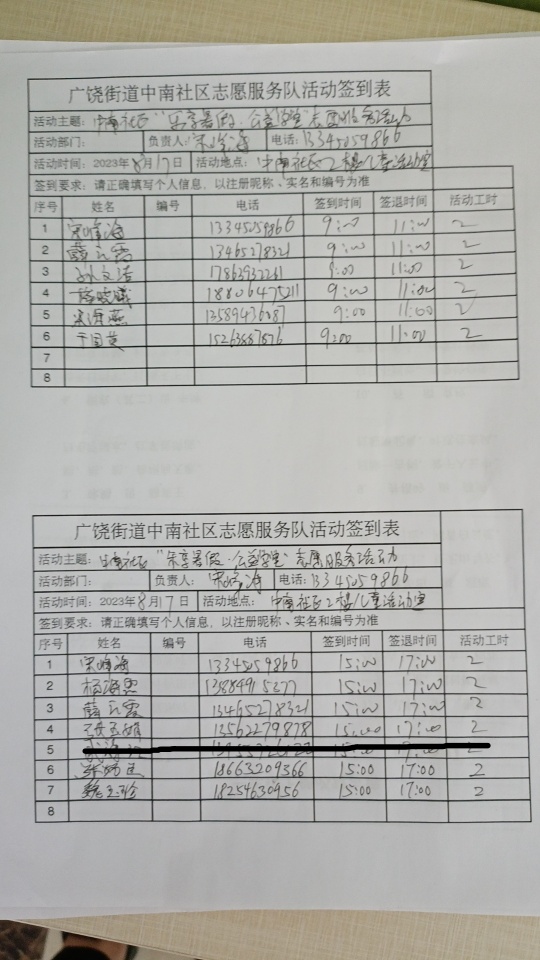 广饶街道中南社区志愿服务队活动签到表
活动主题：中南社区“乐享暑假·公益学堂”志愿服务活动
活动部门： 负责人： 电话：13345059866
活动时间：2023年8月17日 活动地点：中南社区2楼儿童活动室
签到要求：请正确填写个人信息，以注册昵称、实名和编号为准
序号 姓名 编号 电话 签到时间 签退时间 活动工时
1 13345059866 9:00 11:00 2
2 薛云霞 13465278321 9:00 11:00 2
3 孙文洁 9:00 11:00 2
4 18806475211 9:00 11:00 2
5 宋海燕 13589436087 9:00 11:00 2
6 于国英 15263887876 9:00 11:00 2
7
8
广饶街道中南社区志愿服务队活动签到表
活动主题：中南社区“乐享暑假·公益学堂”志愿服务活动
活动部门： 负责人： 电话：13345059866
活动时间：2023年8月17日 活动地点：中南社区2楼儿童活动室
签到要求：请正确填写个人信息，以注册昵称、实名和编号为准
序号 姓名 编号 电话 签到时间 签退时间 活动工时
1 13345059866 15:00 17:00 2
2 15:00 17:00 2
3 薛云霞 13465278321 15:00 17:00 2
4 13562279878 15:00 17:00 2
5 15:00 17:00 2
6 18663209366 15:00 17:00 2
7 魏玉珍 18254630956 15:00 17:00 2
8